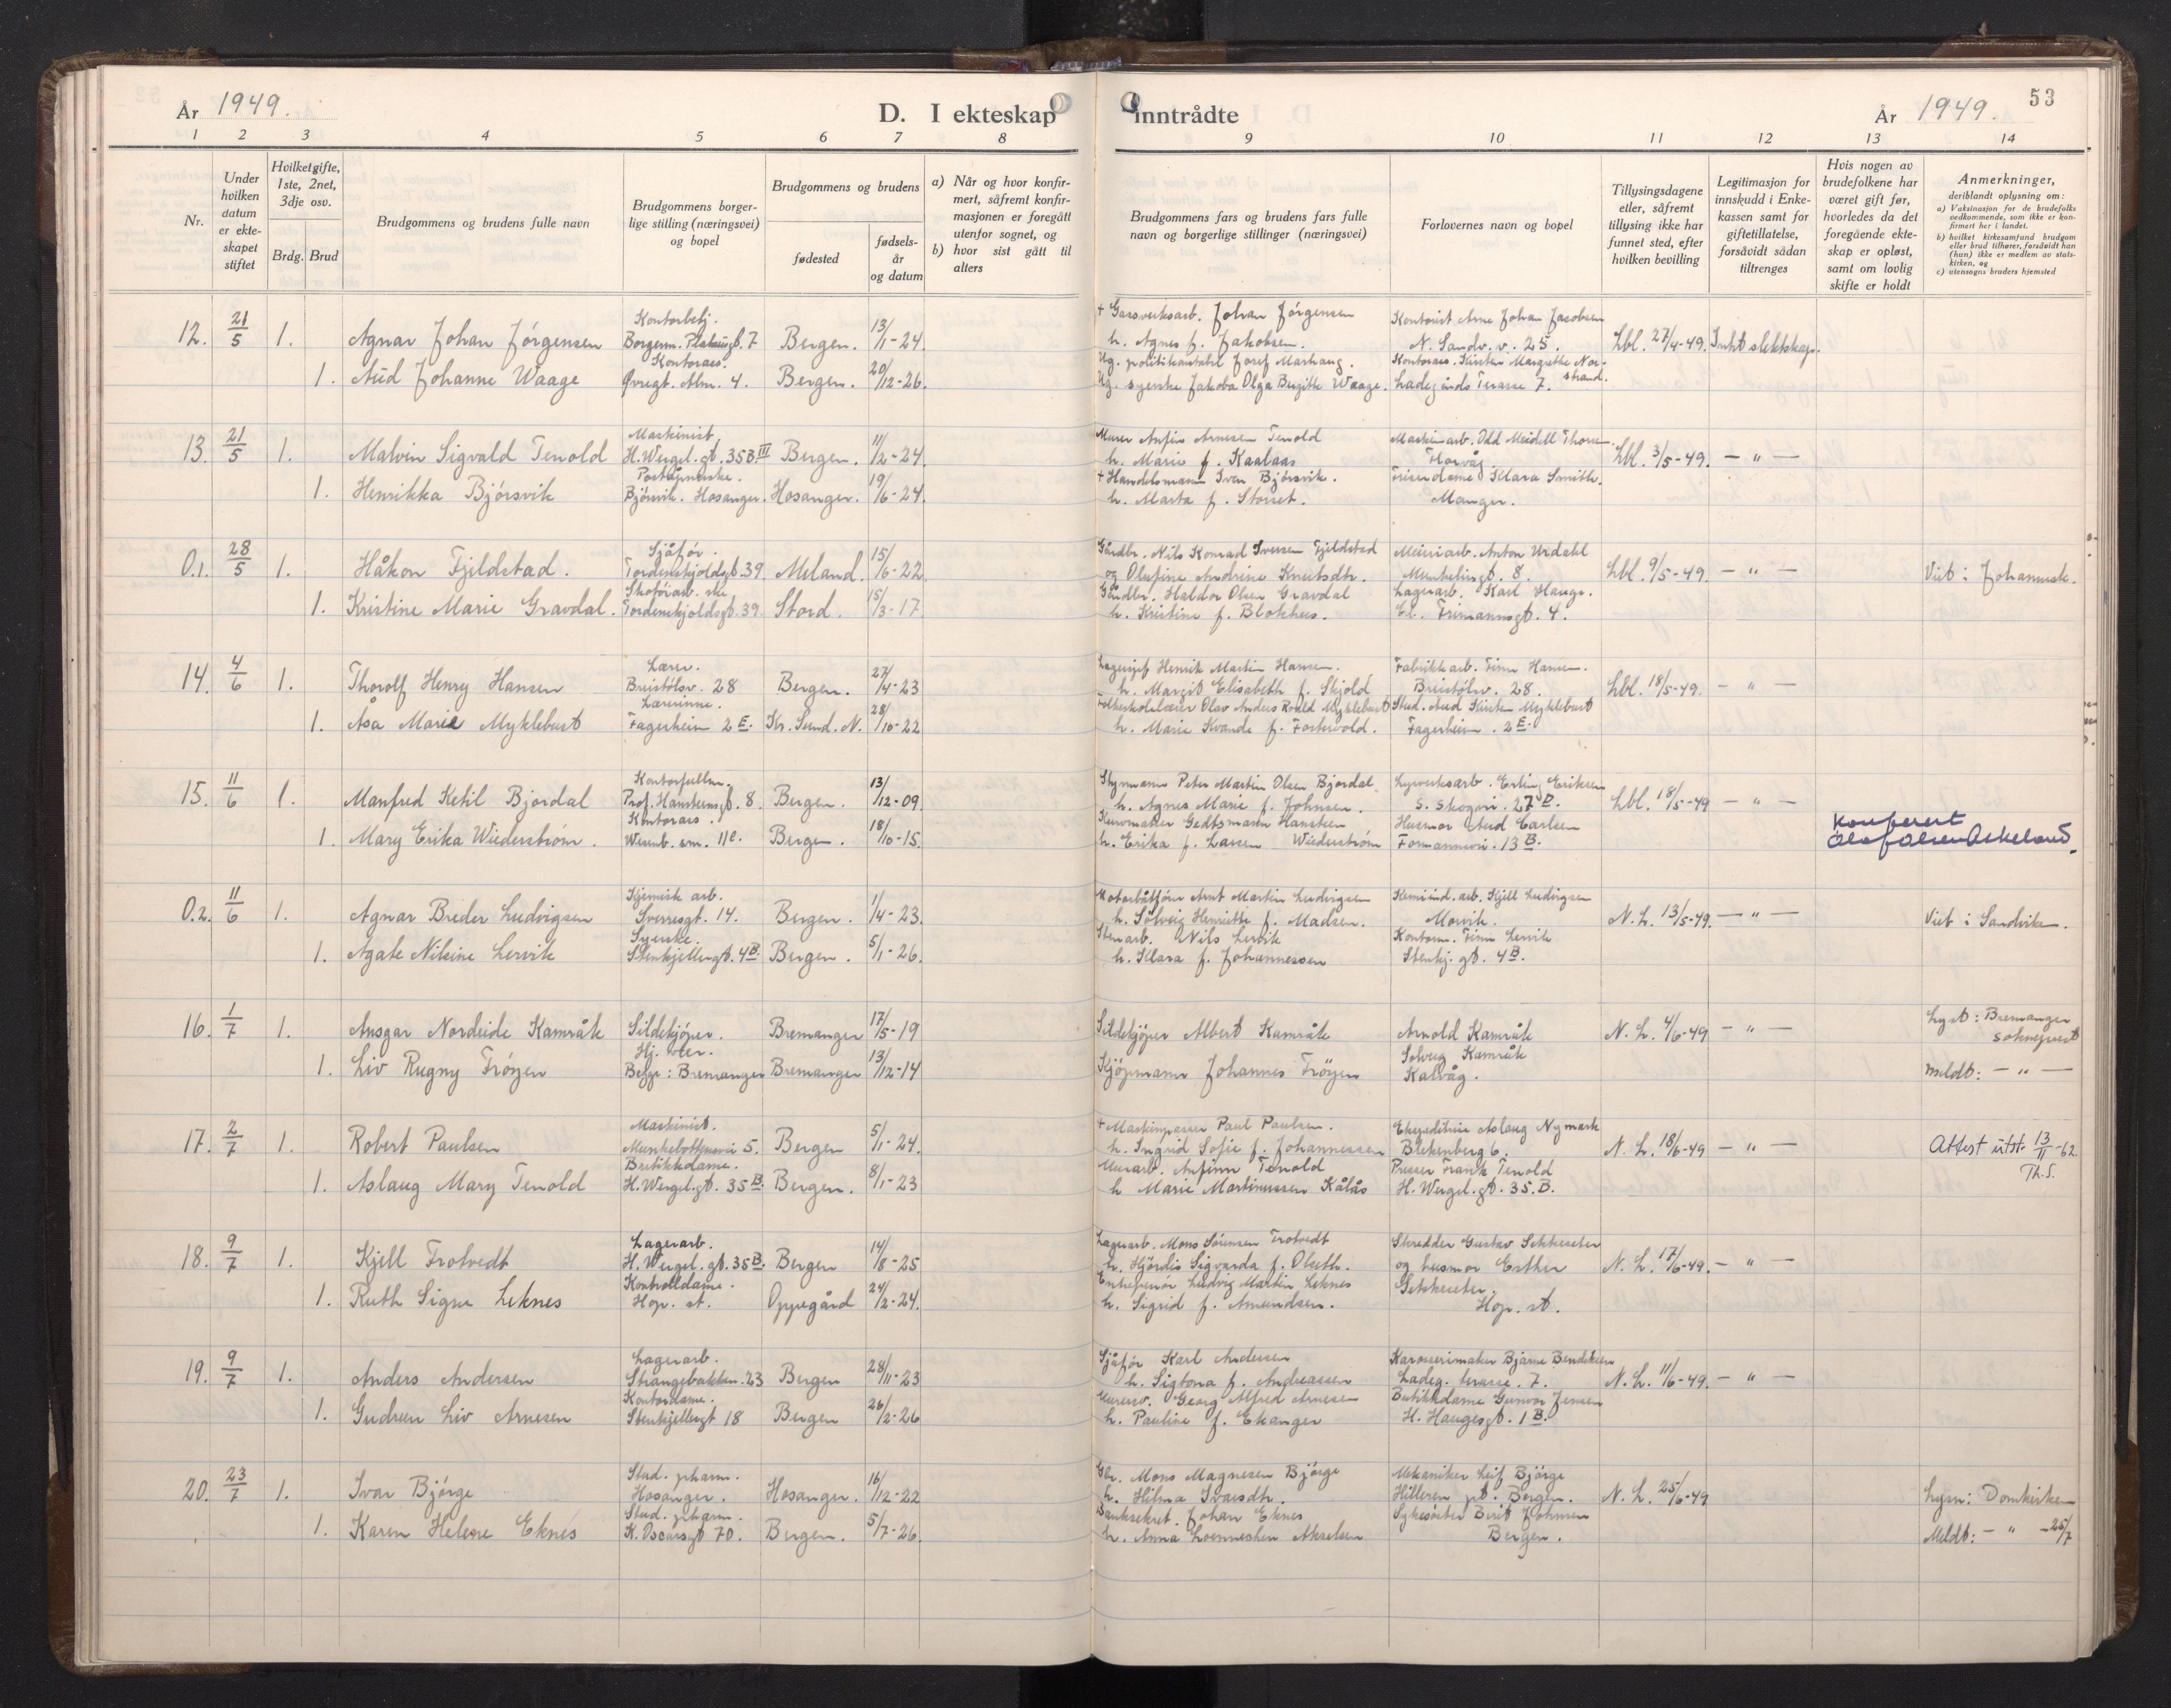 År 1949.
D. I ekteskap inntrådte
År 1949. 53
1 2 3 4 5 6 7 8 9 10 11 12 13 14
Nr.
Under hvilken datum er ekteskapet stiftet
Hvilket gifte, 1ste, 2net, 3dje osv.
Brdg. Brud
Brudgommens og brudens fulle navn
Brudgommens borgerlige stilling (næringsvei) og bopel
Brudgommens og brudens
fødested
fødselsår og datum
a) Når og hvor konfirmert, såfremt konfirmasjonen er foregått utenfor sognet, og
b) hvor sist gått til alters
Brudgommens fars og brudens fars fulle navn og borgerlige stillinger (næringsvei)
Forlovernes navn og bopel
Tillysingsdagene eller, såfremt tillysing ikke har funnet sted, efter hvilken bevilling
Legitimasjon for innskudd i Enkekassen samt for giftetillatelse, forsåvidt sådan tiltrenges
Hvis nogen av brudefolkene har været gift før, hvorledes da det foregående ekteskap er opløst, samt om lovlig skifte er holdt
Anmerkninger, deriblandt oplysning om:
a) Vaksinasjon for de brudefolks vedkommende, som ikke er konfirmert her i landet.
b) hvilket kirkesamfund brudgom eller brud tilhører, forsåvidt han (hun) ikke er medlem av statskirken, og
c) utensogns bruders hjemsted
12. 21/5 1. Agnar Johan Jørgensen Kontorbetj. Borgerm. 7 Bergen. 13/1-24.
+ Gassverksarb. Johan Jørgensen h. Agnes f. Jakobsen. Kontorist Arne Johan Jacobsen N. Sandv. v. 25. Lbl. 27/4-49. Intet slektskap.
1. Aud Johanne Waage Kontorass. Øvregt. Alm. 4. Bergen. 20/12-26.
Ug. Josef Marhaug. Ug. syerske Jakoba Olga Bergitte Waage. Kontorass. Kirsten Margrethe Norstrand. Ladegårds Terasse 7.
13. 21/5 1. Malvin Sigvald Tenold Maskinist. H. Wergel. gt. 35B III Bergen. 11/2-24.
Murer Anfin Arnesen Tenold h. Marie f. Kaalaas Maskinarb. Odd Meidell Thorsen. Florvåg. Lbl. 3/5-49. — " —
1. Henrikka Bjørsvik Poståpnerske. Bjørsvik. Hosanger. Hosanger. 19/6-24.
+ Handelsmann Iver Bjørsvik. h. Marta f. Storset. Frisørdame Klara Smith. Manger.
0.1. 28/5 1. Håkon Fjeldstad. Sjåfør. Tordenskjoldsgt. 39 Meland. 15/6-22.
Gårdbr. Nils Konrad Iversen Fjeldstad og Olufine Andrine Knutsdtr. Meieriarb. Anton Urdahl Munkelivsgt. 8. Lbl. 9/5-49. — " — Viet i Johannesk.
1. Kristine Marie Gravdal. Skofarb.ske Tordenskjoldsgt. 39. Stord. 15/3-17.
Gårdbr. Haldor Olsen Gravdal h. Kristine f. Blokhus. Lagerarb. Karl Hauge. Cl. Frimannsgt. 4.
14. 4/6 1. Thorolf Henry Hansen Lærer. Breistølsv. 28 Bergen. 27/4-23
Lagersjef Henrik Martin Hansen. h. Margit Elisabeth f. Skjold Fabrikkarb. Finn Hansen. Breistølsv. 28. Lbl. 18/5-49. — " —
1. Åsa Marie Myklebust Lærerinne. Fagerheim 2E. Kr. Sund. N. 28/10-22
Folkeskolelærer Olav Anders Roald Myklebust h. Marie Kvande f. Fostervold. Stud. Aud Kirsten Myklebust Fagerheim. 2E.
15. 11/6 1. Manfred Ketil Bjordal Kontorfullm. Prof. Hansteensgt. 8. Bergen. 13/12-09.
Styrmann Peter Martin Olsen Bjordal. h. Agnes Marie f. Johnsen. Lysverksarb. Erling Eriksen S. Skogvei. 27D. Lbl. 18/5-49 — " —
1. Mary Erika Wiederstrøm. Kontorass. Wesenb. sm. 11e. Bergen. 18/10-15.
Kurvmaker Gedtsmann Hansteen Wiederstrøm h. Erika f. Larsen Husmor Aud Carlsen Formannsvei. 13B.
Konferert
Olaf Olsen Askeland.
0.2. 11/6 1. Agnar Breder Ludvigsen Kjemisk arb. Sverresgt. 14. Bergen. 1/4-23.
Motorbåtfører Arnt Martin Ludvigsen h. Solveig Henriette f. Madsen. Kemiind. arb. Kjell Ludvigsen Morvik. N. L. 13/5-49. — " — Viet i Sandviken.
1. Agate Nilsine Lervik Syerske. Stenkjellergt. 4B. Bergen. 5/1-26.
Stenarb. Nils Lervik h. Klara f. Johannessen Kontorm. Finn Lervik Stenkj. gt. 4B.
16. 1/7 1. Ansgar Nordeide Kamråk Sildekjøper. Bremanger 17/5-19
Sildekjøper Albert Kamråk Arnold Kamråk N. L. 4/6-49 — " — Lyst: Bremanger sokneprest
1. Liv Rugny Frøyen Hj. vær. Begge: Bremanger Bremanger 13/12-14
Kjøpmann Johannes Frøyen Solveig Kamråk Kalvåg. Meldt: — " —
17. 2/7 1. Robert Paulsen Maskinist. Munkebotsveien 5. Bergen 5/1-24.
+ Maskinpasser Paul Paulsen. h. Ingrid Sofie f. Johannessen Ekspeditrise Aslaug Nymark Blekenberg 6. N. L. 18/6-49 — " — Attest utst. 13/11-62. Th.S.
1. Aslaug Mary Tenold Butikkdame. H. Wergel. gt. 35B. Bergen. 8/1-23
Murarb. Anfinn Tenold h Marie Martinussen Kålås Presser Frank Tenold H. Wergel. gt. 35.B.
18. 9/7 1. Kjell Trotvedt Lagerarb. H. Wergel. gt. 35B. Bergen 14/8-25
Lagerarb. Mons Sørensen Trotvedt h. Hjørdis Sigvarda f. Olseth. Skredder Gustav Sekkeseter og husmor Esther N. L. 17/6-49. — " —
1. Ruth Signe Leknes Kontrolldame. Hop. st. Oppegård 24/2-24.
Entreprenør Ludvig Martin Leknes h. Sigrid f. Amundsen. Sekkeseter. Hop. st.
19. 9/7 1. Anders Andersen Lagerarb. Strangebakken. 23 Bergen 28/11-23
Sjåfør Karl Andersen h. Sigtona f. Andreassen Karosserimaker Bjarne Bendiksen Ladeg. terasse. 7. N. L. 11/6-49. — " —
1. Gudrun Liv Arnesen Kontordame. Stenkjellergt 18 Bergen 26/2-26
Murersv. Georg Alfred Arnesen h. Pauline f. Ekanger Butikkdame Gunvor Jensen H. Haugesgt. 1B.
20. 23/7 1. Ivar Bjørge Stud. pharm. Hosanger. Hosanger. 16/12-22
Gbr. Mons Magnesen Bjørge h. Hilma Ivarsdtr. Mekaniker Leif Bjørge Hilleren pt. Bergen. N. L. 25/6-49 Lysn: Domkirken
1. Karen Helene Eknes Stud. pharm. K. Oscarsgt 70. Bergen. 5/7-26.
Banksekret. Johan Eknes h. Anna Loennechen Akselsen Sykesøster Berit Johnsen Bergen. Meldt: — " — 25/7